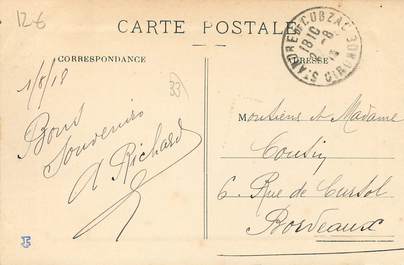 12-6
CARTE POSTALE
CORRESPONDANCE
ADRESSE
ST ANDRE DE CUBZAC GIRONDE
18 10
1/8/18
33
Bons
Souvenirs
A Richard
Monsieur et Madame
Cousin
6 Rue de Cursol
Bordeaux